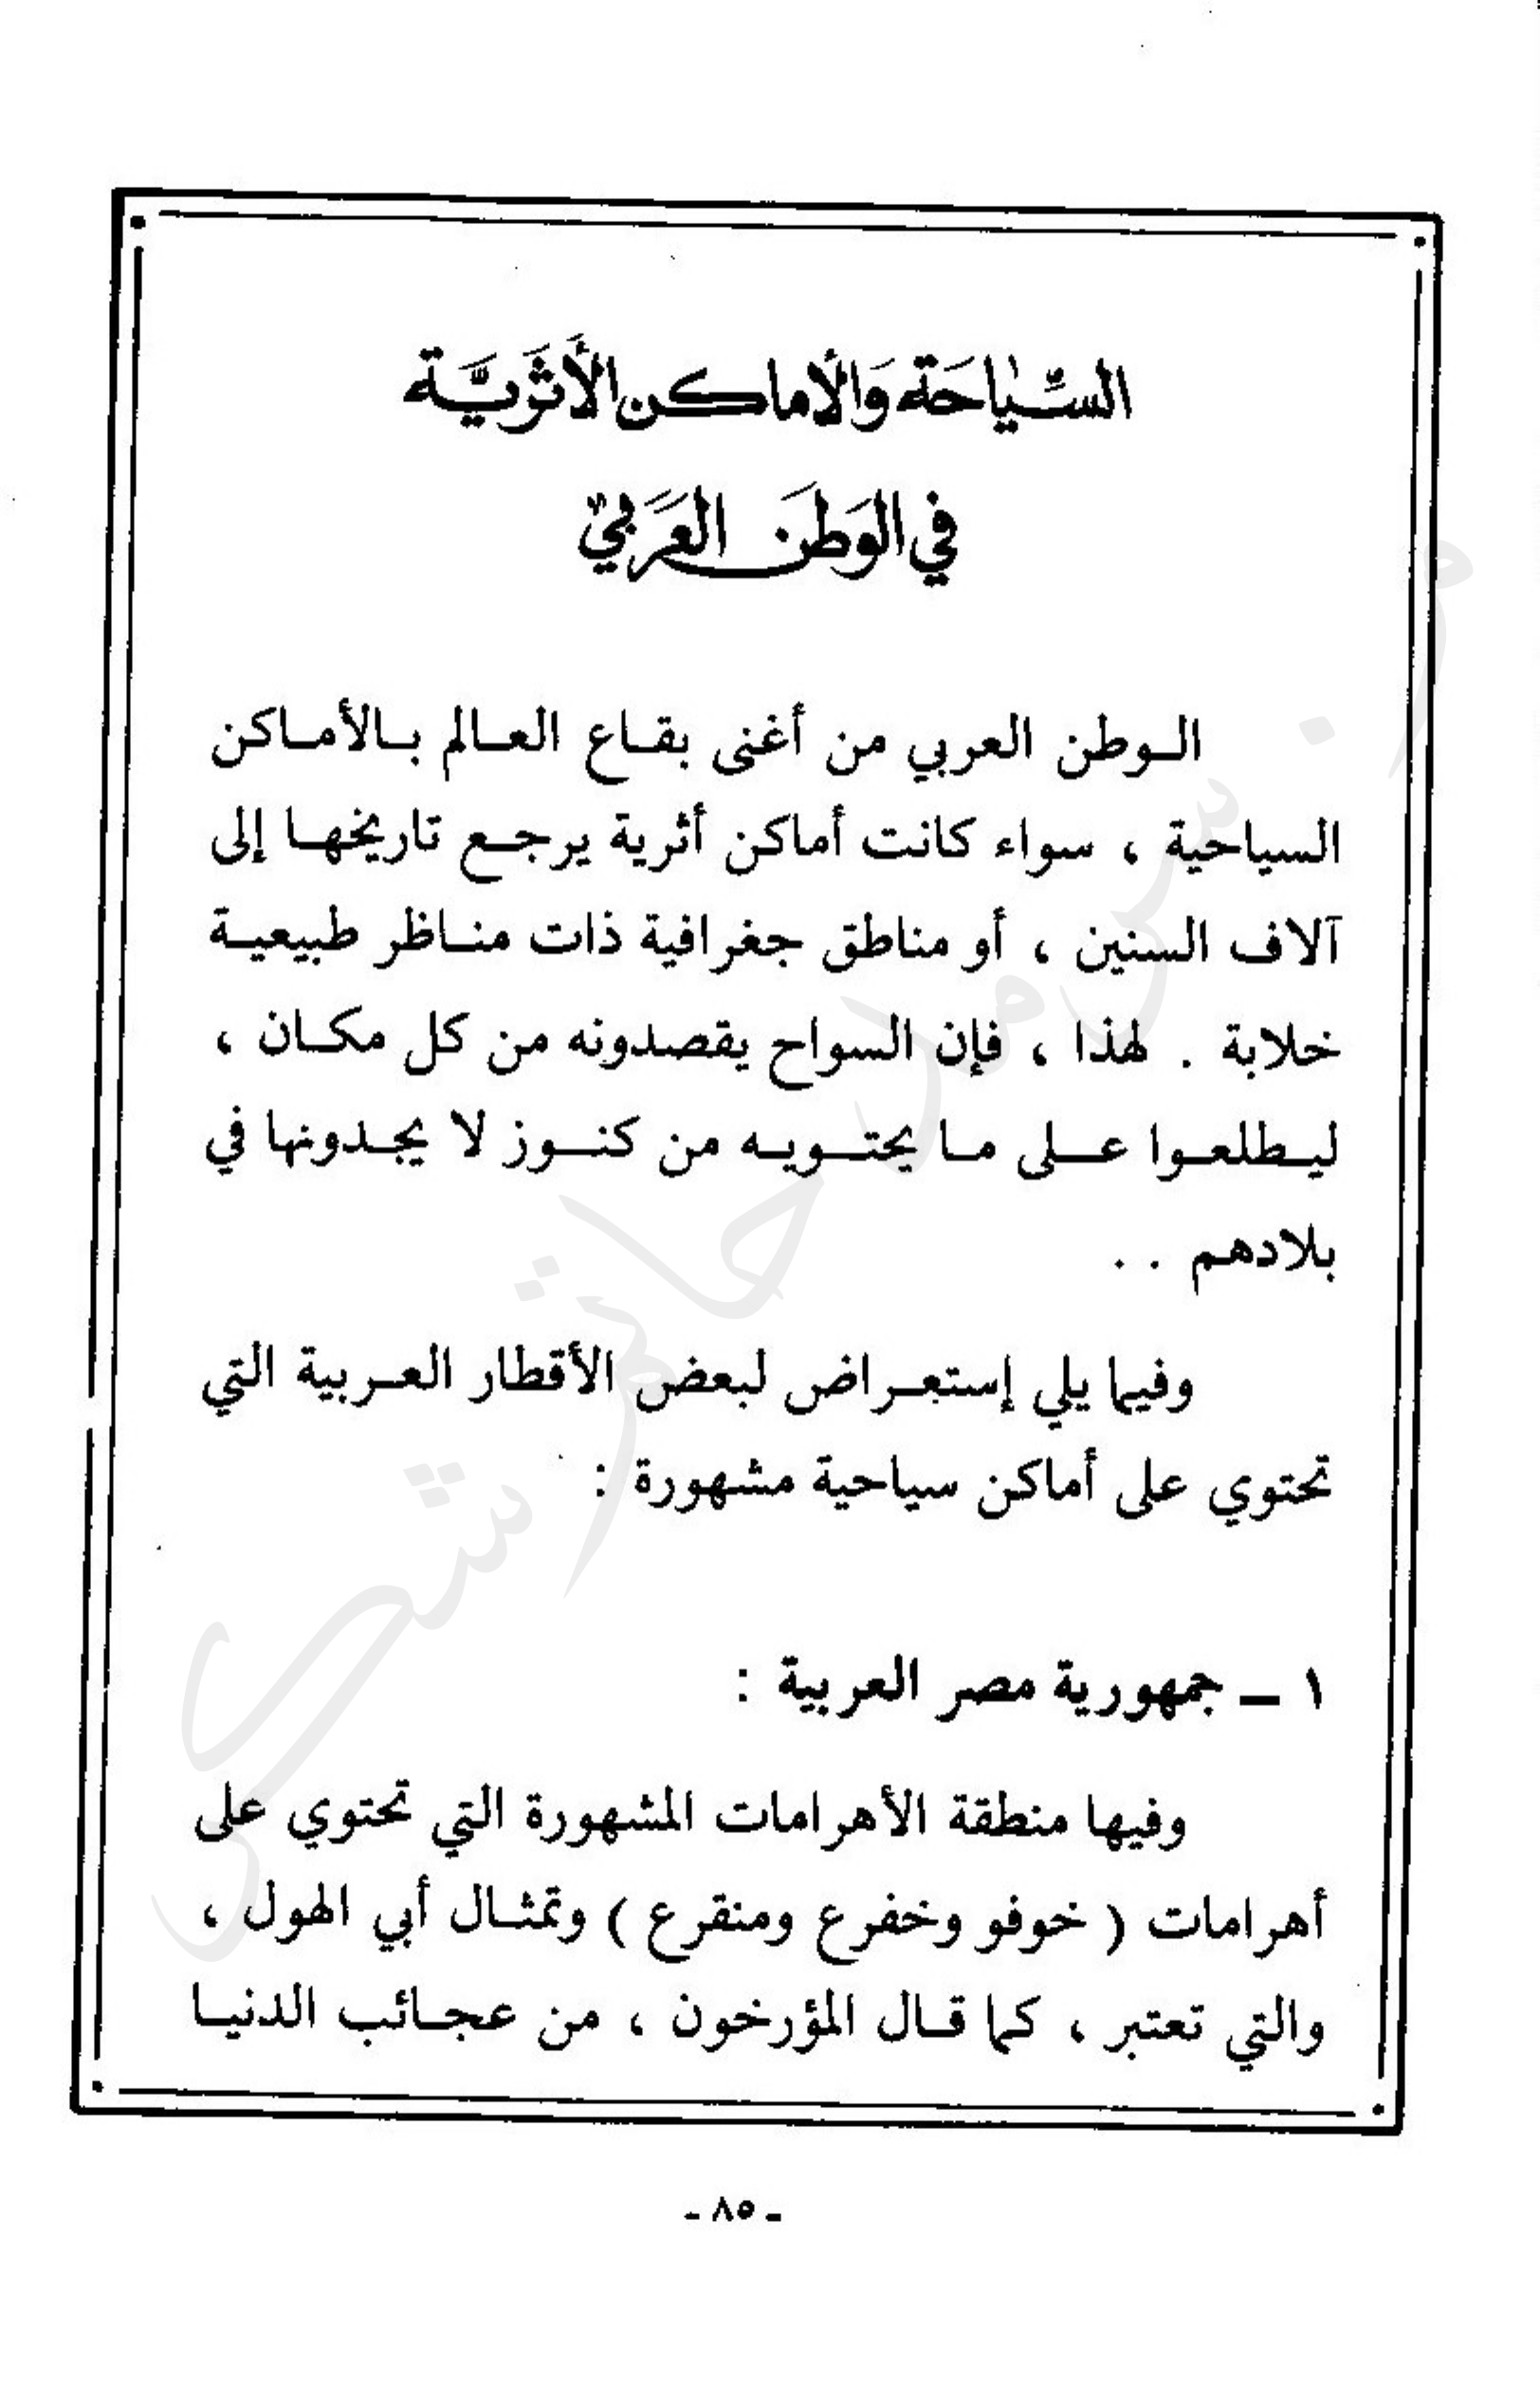 السِّيَاحَة وَالأماكن الأَثَريَّة
في الوَطَن العَرَبيّ
الوطن العربي من أغنى بقاع العالم بالأماكن
السياحية ، سواء كانت أماكن أثرية يرجع تاريخها إلى
آلاف السنين ، أو مناطق جغرافية ذات مناظر طبيعية
خلابة . لهذا ، فإن السواح يقصدونه من كل مكان ،
ليطلعوا على ما يحتويه من كنوز لا يجدونها في
بلادهم . .
وفيما يلي إستعراض لبعض الأقطار العربية التي
تحتوي على أماكن سياحية مشهورة :
١ ـ جمهورية مصر العربية :
وفيها منطقة الأهرامات المشهورة التي تحتوي على
أهرامات ( خوفو وخفرع ومنقرع ) وتمثال أبي الهول ،
والتي تعتبر ، كما قال المؤرخون ، من عجائب الدنيا
- ٨٥ -